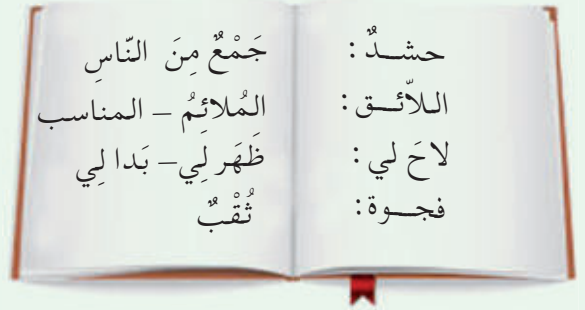 حشـــدٌ : جَمْعٌ مِنَ النّاسِ
اللاّئـــق : المُلائِمُ – المناسب
لاحَ لي : ظَهَر لِي– بَدا لِي
فجـــوة : ثُقْبٌ